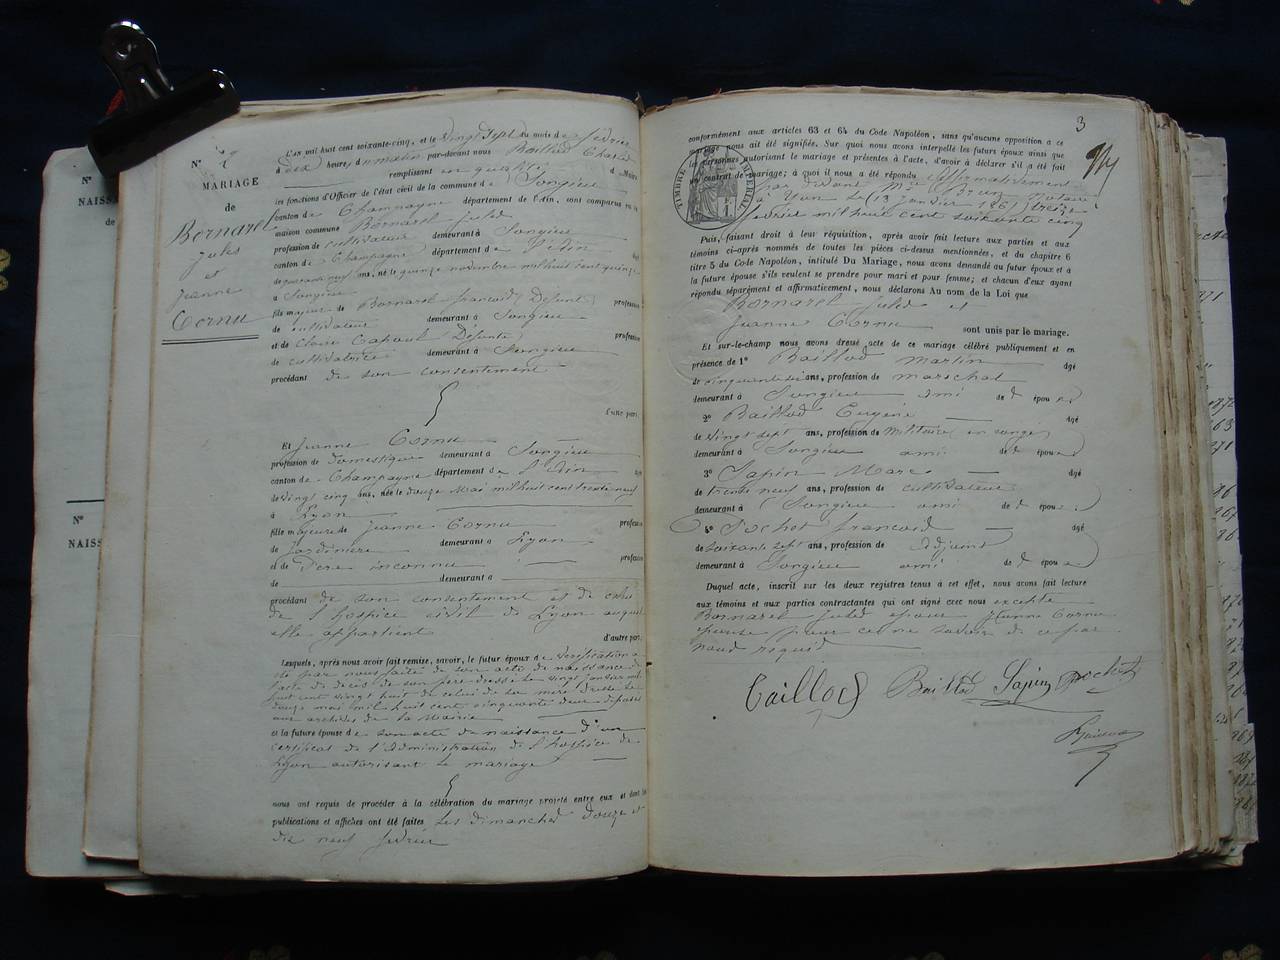 N°
NAISS
de
N°
NAISS
N° 2
MARIAGE
de
Bornarel
Jules
et
Jeanne
Cornu
L'an mil huit cent soixante-cinq, et le Vingt Sept du mois de fevrier
à dix heures du matin par-devant nous Baillod Charles
Maire remplissant en qualité
les fonctions d'Officier de l'état civil de la commune de Songieu
canton de Champagne département de l'Ain, sont comparus en la
maison commune Bornarel Jules
profession de cultivateur demeurant à Songieu
canton de Champagne département de l'Ain
ans, né le quinze novembre mil huit cent quinze
à Songieu
fils majeur de Bornarel francois Défunt profession
de cultivateur demeurant à Songieu
et de Claire Capoul Défunte profession
de cultivatrice demeurant à Songieu
procédant de son consentement
d'une part,
Et Jeanne Cornu
profession de Domestique demeurant à Songieu
canton de Champagne département de l'Ain âgé
de Vingt cinq ans, née le douze Mai mil huit cent trente neuf
à Lyon
fille majeure de Jeanne Cornu profession
de Jardiniere demeurant à Lyon
et de Pere inconnu profession
de demeurant à
procédant de son consentement et de celui
de l'hospice civil de Lyon auquel
elle appartient
d'autre part;
Lesquels, après nous avoir fait remise, savoir, le futur époux de Verification a
été par nous faite de son acte de naissance de
l'acte de deces de son pere dressé le vingt janvier mil
huit cent vingt huit de celui de sa mere dressé le
douze mai mil huit cent cinquante deux deposés
aux archives de la Mairie
et la future épouse de son acte de naissance d'un
certificat de l'Administration de l'hospice de
Lyon autorisant le mariage
nous ont requis de procéder à la célébration du mariage projeté entre eux et dont les
publications et affiches ont été faites Les dimanches douze et
dix neuf fevrier
3
conformément aux articles 63 et 64 du Code Napoléon, sans qu'aucune opposition à ce
mariage nous ait été signifiée. Sur quoi nous avons interpellé les futurs époux ainsi que
les personnes autorisant le mariage et présentes à l'acte, d'avoir à déclarer s'il a été fait
un contrat de mariage; à quoi il nous a été répondu Affirmativement
par devant Me Brun Notaire
à Yen le 13 janvier 1865 treize
fevrier mil huit cent soixante cinq
TIMBRE IMPERIAL
Puis, faisant droit à leur réquisition, après avoir fait lecture aux parties et aux
témoins ci-après nommés de toutes les pièces ci-dessus mentionnées, et du chapitre 6
titre 5 du Code Napoléon, intitulé Du Mariage, nous avons demandé au futur époux et à
la future épouse s'ils veulent se prendre pour mari et pour femme; et chacun d'eux ayant
répondu séparément et affirmaticement, nous déclarons Au nom de la Loi que
Bornarel Jules et
Jeanne Cornu sont unis par le mariage.
Et sur-le-champ nous avons dressé acte de ce mariage célébré publiquement et en
présence de 1° Baillod Martin âgé
de cinquante six ans, profession de marechal
demeurant à Songieu ami de d époux
2° Baillod Eugene âgé
de Vingt sept ans, profession de Militaire en conge
demeurant à Songieu ami de d époux
3° Sapin Marc âgé
de trente neuf ans, profession de cultivateur
demeurant à Songieu ami de d époux
4° Pochet francois âgé
de Soixante Sept ans, profession de Adjoint
demeurant à Songieu ami de d époux
Duquel acte, inscrit sur les deux registres tenus à cet effet, nous avons fait lecture
aux témoins et aux parties contractantes qui ont signé avec nous excepté
Bornarel Jules epoux Jeanne Cornu
epouse pour cause ne savoir de ce par
nous requis
Baillod Baillod Sapin Pochet